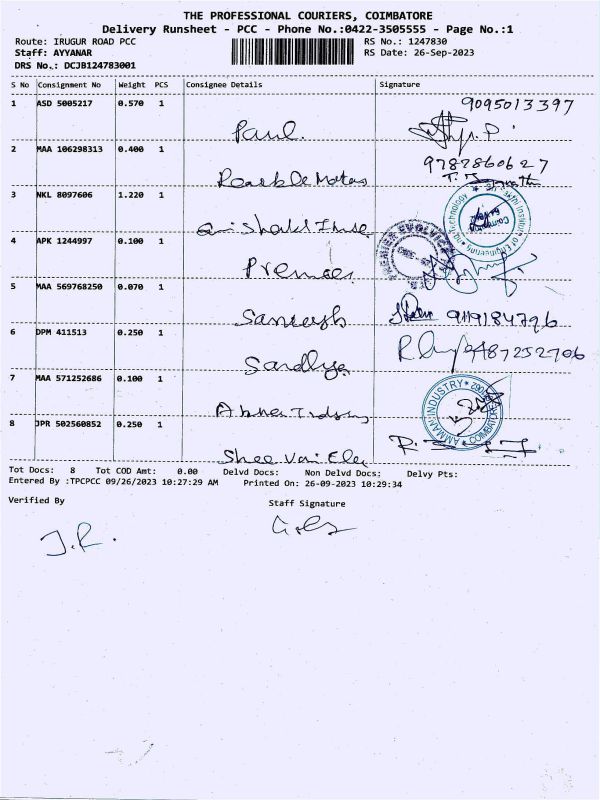 THE PROFESSIONAL COURIERS, COIMBATORE
Delivery Runsheet - PCC - Phone No.:0422-3505555 - Page No.:1
Route: IRUGUR ROAD PCC
Staff: AYYANAR
DRS No.: DCJB124783001
RS No.: 1247830
RS Date: 26-Sep-2023
S No Consignment No Weight PCS Consignee Details Signature
1 ASD 5005217 0.570 1 9095013397
Paul.
2 MAA 106298313 0.400 1 9787860627
3 NKL 8097606 1.220 1
4 APK 1244997 0.100 1
5 MAA 569768250 0.070 1
9119184796
6 DPM 411513 0.250 1
Sandhya
7 MAA 571252686 0.100 1
AMMAN INDUSTRY COIMBATORE
8 JPR 502560852 0.250 1
Tot Docs: 8 Tot COD Amt: 0.00 Delvd Docs: Non Delvd Docs: Delvy Pts:
Entered By :TPCPCC 09/26/2023 10:27:29 AM Printed On: 26-09-2023 10:29:34
Verified By Staff Signature
J.R.